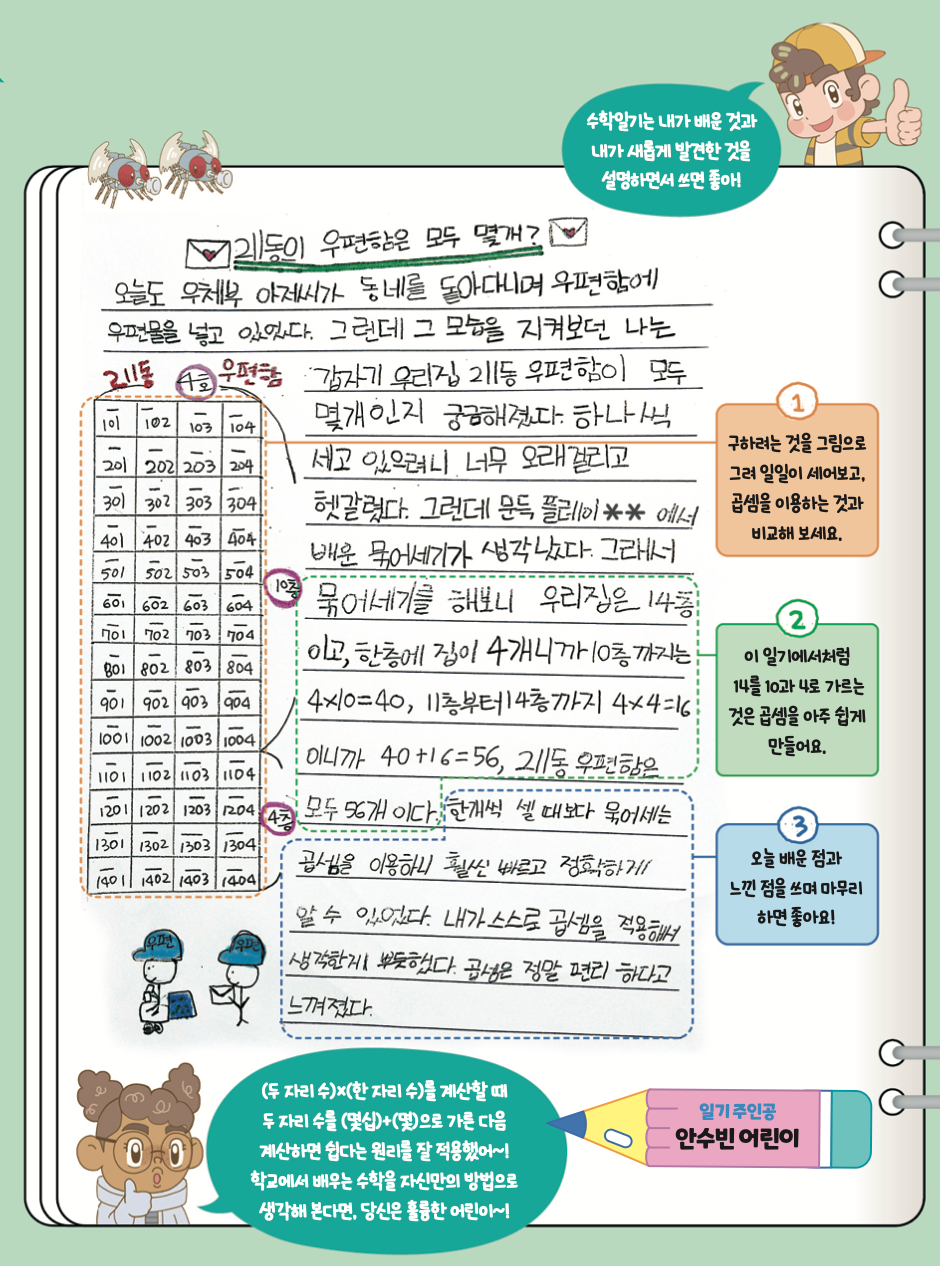 수학일기는 내가 배운 것과
내가 새롭게 발견한 것을
설명하면서 쓰면 좋아!
211동의 우편함은 모두 몇개?
오늘도 우체부 아저씨가 동네를 돌아다니며 우편함에
우편물을 넣고 있었다. 그런데 그 모습을 지켜보던 나는
갑자기 우리집 211동 우편함이 모두
몇개인지 궁금해졌다. 하나씩
세고 있으려니 너무 오래걸리고
헷갈렸다. 그런데 문득 플레이** 에서
배운 묶어세기가 생각났다. 그래서
묶어세기를 해보니 우리집은 14층
이고, 한층에 집이 4개니까 10층까지는
4×10=40, 11층부터 14층까지 4×4=16
이니까 40+16=56, 211동 우편함은
모두 56개 이다. 한개씩 셀 때보다 묶어세는
곱셈을 이용하니 훨씬 빠르고 정확하게
알 수 있었다. 내가 스스로 곱셈을 적용해서
생각한게 뿌듯했다. 곱셈은 정말 편리 하다고
느껴졌다.
211동 4호 우편함
101 102 103 104
201 202 203 204
301 302 303 304
401 402 403 404
501 502 503 504
601 602 603 604
701 702 703 704
801 802 803 804
901 902 903 904
1001 1002 1003 1004
1101 1102 1103 1104
1201 1202 1203 1204
1301 1302 1303 1304
1401 1402 1403 1404
10층
4층
우편 우편
1
구하려는 것을 그림으로
그려 일일이 세어보고,
곱셈을 이용하는 것과
비교해 보세요.
2
이 일기에서처럼
14를 10과 4로 가르는
것은 곱셈을 아주 쉽게
만들어요.
3
오늘 배운 점과
느낀 점을 쓰며 마무리
하면 좋아요!
(두 자리 수)×(한 자리 수)를 계산할 때
두 자리 수를 (몇십)+(몇)으로 가른 다음
계산하면 쉽다는 원리를 잘 적용했어~!
학교에서 배우는 수학을 자신만의 방법으로
생각해 본다면, 당신은 훌륭한 어린이~!
일기 주인공
안수빈 어린이